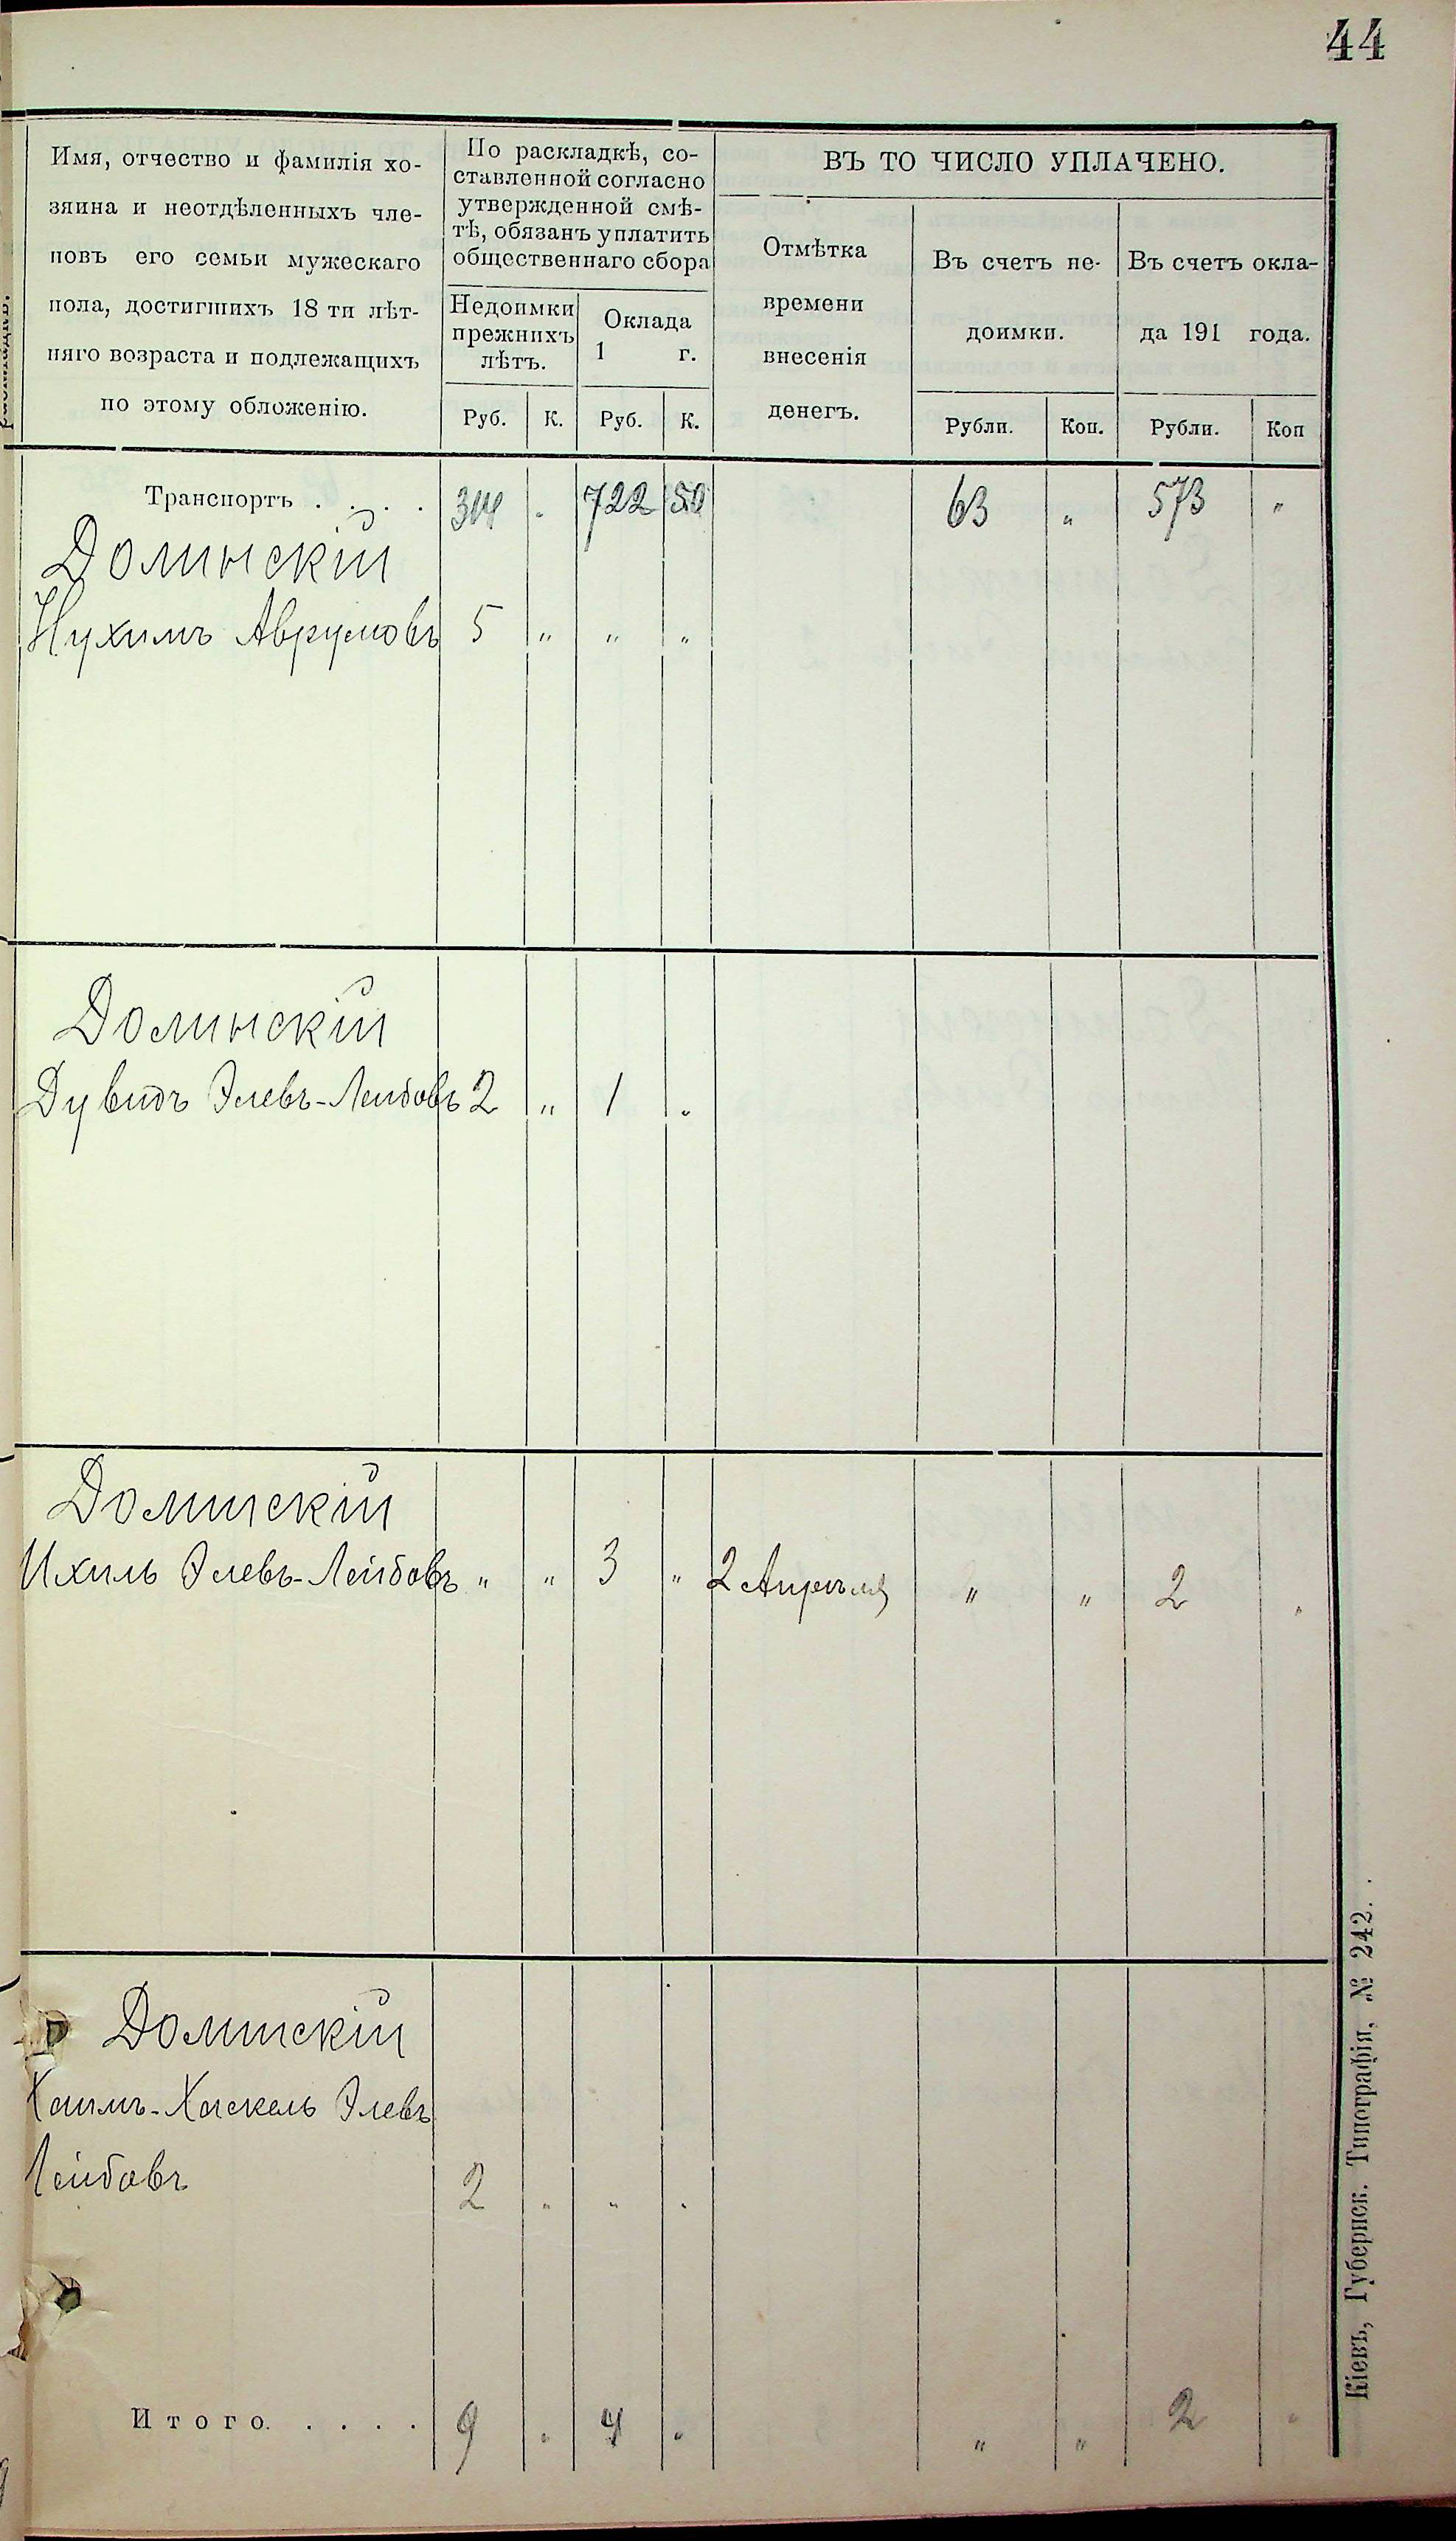 44
Имя, отчество и фамилія хо-
зяина и неотдѣленныхъ чле-
новъ его семьи мужескаго
пола, достигшихъ 18 ти лѣт-
няго возраста и подлежащихъ
по этому обложенію.
По раскладкѣ, со-
ставленной согласно
утвержденной смѣ-
тѣ, обязанъ уплатить
общественнаго сбора
Недоимки
прежнихъ
лѣтъ.
Оклада
1 г.
Руб. К. Руб. К.
ВЪ ТО ЧИСЛО УПЛАЧЕНО.
Отмѣтка
времени
внесенія
денегъ.
Въ счетъ не-
доимки.
Въ счетъ окла-
да 191 года.
Рубли. Коп. Рубли. Коп
Транспортъ . . . . 314 „ 722 50 63 „ 573 „
Долинскій
Нухимъ Аврумовъ 5 „ „ „
Долинскій
Дувидъ Элевъ-Лейбовъ 2 „ 1 „
Долинскій
Ихиль Элевъ-Лейбовъ „ „ 3 „ 2 Апрѣля „ „ 2 „
Долинскій
Хаимъ-Хаскель Элевъ
Лейбовъ 2 „ „ „
Итого. . . . . 9 „ 4 „ „ „ 2 „
Кіевъ, Губернск. Типографія, № 242.